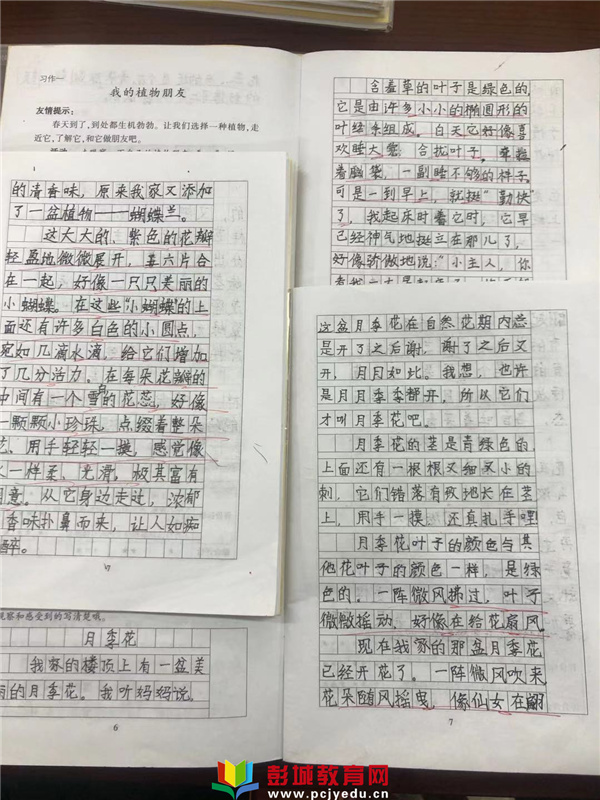 习作一
我的植物朋友
友情提示：
春天到了，到处都生机勃勃。让我们选择一种植物，走
近它，了解它，和它做朋友吧。
的清香味，原来我家又添加
了一盆植物——蝴蝶兰。
这大大的、紫色的花瓣
轻盈地微微展开，五六片合
在一起，好像一只只美丽的
小蝴蝶。在这些“小蝴蝶”的上
面还有许多白色的小圆点，
宛如几滴水滴，给它们增加
了几分活力。在每朵花瓣的
中间有一个雪白的花蕊，好像
一颗颗小珍珠，点缀着整朵
花。用手轻轻一摸，感觉像
一样柔、光滑。极其富有
意。从它身边走过，浓郁
香味扑鼻而来，让人如痴
醉。
7
观察和感受到的写清楚哦。
月季花
我家的楼顶上有一盆美
丽的月季花。我听妈妈说，
6
含羞草的叶子是绿色的，
它是由许多小小的椭圆形的
叶经手组成。白天它好像喜
欢睡大觉，合拢叶子。牵拉
着脑袋，一副睡不够的样子。
可是一到早上，就挺“勤快”
了，我起床时看它时，它早
已经神气地挺立在那儿了，
好像骄傲地说：“小主人，你
这盆月季花在自然花期内总
是开了之后谢，谢了之后又
开，月月如此。我想，也许
是月月季季都开，所以它们
才叫月季花吧。
月季花的茎是青绿色的，
上面还有一根根又细又小的
刺，它们错落有致地长在茎
上，用手一摸，还真扎手哩
月季花叶子的颜色与其
他花叶子的颜色一样，是绿
色的。一阵微风拂过，叶子
微微摇动，好像在给花扇风。
现在我家的那盆月季花
已经开花了。一阵微风吹来
花朵随风摇曳，像仙女在翩
7
彭城教育网
www.pcjyedu.cn